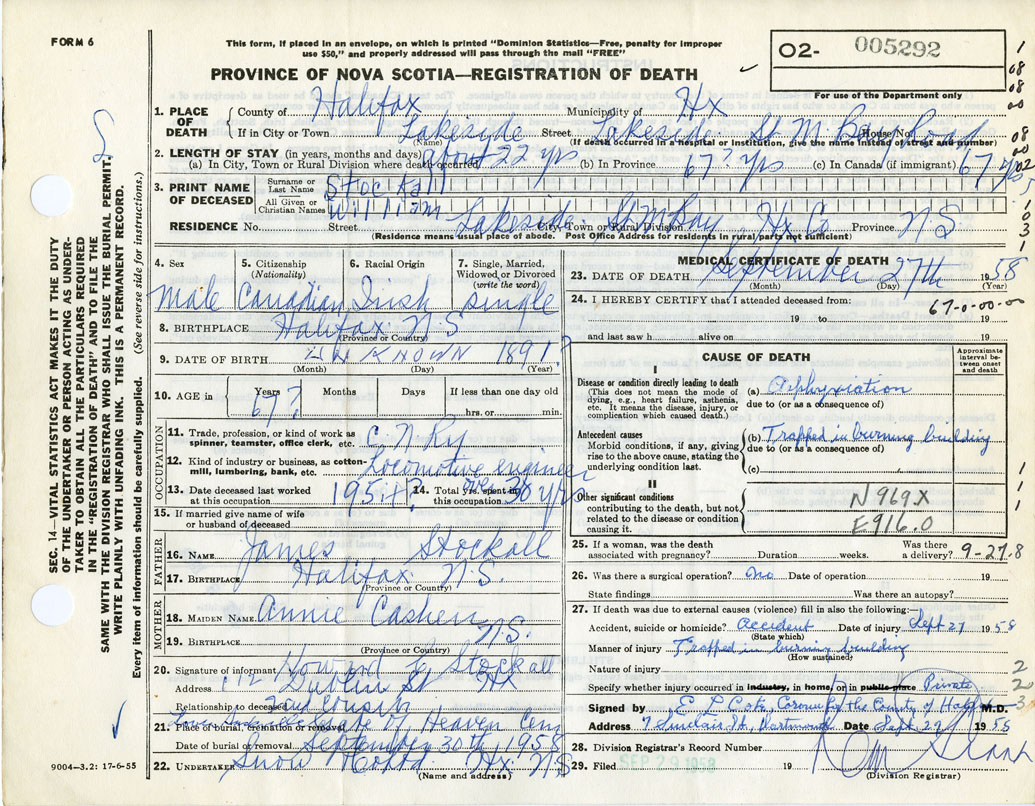 FORM 6
This form, if placed in an envelope, on which is printed "Dominion Statistics—Free, penalty for improper
use $50," and properly addressed will pass through the mail "FREE"
PROVINCE OF NOVA SCOTIA—REGISTRATION OF DEATH
02- 005292
For use of the Department only
1. PLACE OF DEATH
County of Halifax Municipality of Hx
If in City or Town Lakeside Street Lakeside St M Bay Road House No.
(Name) (If death occurred in a hospital or institution, give the name instead of street and number)
2. LENGTH OF STAY (in years, months and days)
(a) In City, Town or Rural Division where death occurred About 22 yrs (b) In Province 67? yrs (c) In Canada (if immigrant) 67 yrs
3. PRINT NAME OF DECEASED
Surname or Last Name Stockall
All Given or Christian Names William
RESIDENCE No. Street Lakeside St M Bay City, Town or Rural Division Hx Co Province N S
(Residence means usual place of abode. Post Office Address for residents in rural parts not sufficient)
4. Sex Male
5. Citizenship (Nationality) Canadian
6. Racial Origin Irish
7. Single, Married, Widowed or Divorced (write the word) single
8. BIRTHPLACE Halifax N S
(Province or Country)
9. DATE OF BIRTH UNKNOWN 1891?
(Month) (Day) (Year)
10. AGE in Years 67? Months Days If less than one day hrs. or min.
OCCUPATION
11. Trade, profession, or kind of work as spinner, teamster, office clerk, etc. C N Ry
12. Kind of industry or business, as cotton-mill, lumbering, bank, etc. Locomotive engineer
13. Date deceased last worked at this occupation 1954?
14. Total yrs. spent in this occupation over 30 yrs
15. If married give name of wife or husband of deceased
FATHER
16. NAME James Stockall
17. BIRTHPLACE Halifax N.S.
(Province or Country)
MOTHER
18. MAIDEN NAME Annie Cashen
19. BIRTHPLACE N.S.
(Province or Country)
20. Signature of informant Howard Stockall
Address 112 Dublin St Hx
Relationship to deceased 2nd cousin
21. Place of burial, cremation or removal Gate of Heaven Cem
Date of burial or removal September 30th 1958
22. UNDERTAKER Snow Hx N S
(Name and address)
MEDICAL CERTIFICATE OF DEATH
23. DATE OF DEATH September 27th 1958
(Month) (Day) (Year)
24. I HEREBY CERTIFY that I attended deceased from:
67-0-00-00
19 to 19
and last saw h alive on 19
CAUSE OF DEATH
Approximate interval between onset and death
I
Disease or condition directly leading to death
(This does not mean the mode of dying, e.g., heart failure, asthenia, etc. It means the disease, injury, or complication which caused death.)
(a) Asphyxiation
due to (or as a consequence of)
Antecedent causes
Morbid conditions, if any, giving rise to the above cause, stating the underlying condition last.
(b) Trapped in burning building
due to (or as a consequence of)
(c)
II
Other significant conditions
contributing to the death, but not related to the disease or condition causing it.
N 969X
E916.0
25. If a woman, was the death associated with pregnancy? Duration weeks. Was there a delivery? 9-27-8
26. Was there a surgical operation? no Date of operation 19
State findings Was there an autopsy?
27. If death was due to external causes (violence) fill in also the following:
Accident, suicide or homicide? Accident Date of injury Sept 27 1958
(State which)
Manner of injury Trapped in burning building
(How sustained)
Nature of injury
Specify whether injury occurred in industry, in home, or in public place Private
Signed by Coroner for the County of Halifax M.D.
Address 7 Sinclair St, Dartmouth Date Sept 29 1958
28. Division Registrar's Record Number
29. Filed SEP 29 1958 19
(Division Registrar)
SEC. 14—VITAL STATISTICS ACT MAKES IT THE DUTY
OF THE UNDERTAKER OR PERSON ACTING AS UNDER-
TAKER TO OBTAIN ALL THE PARTICULARS REQUIRED
IN THE "REGISTRATION OF DEATH" AND TO FILE THE
SAME WITH THE DIVISION REGISTRAR WHO SHALL ISSUE THE BURIAL PERMIT.
WRITE PLAINLY WITH UNFADING INK. THIS IS A PERMANENT RECORD.
Every item of information should be carefully supplied. (See reverse side for instructions.)
9004-3.2: 17-6-55